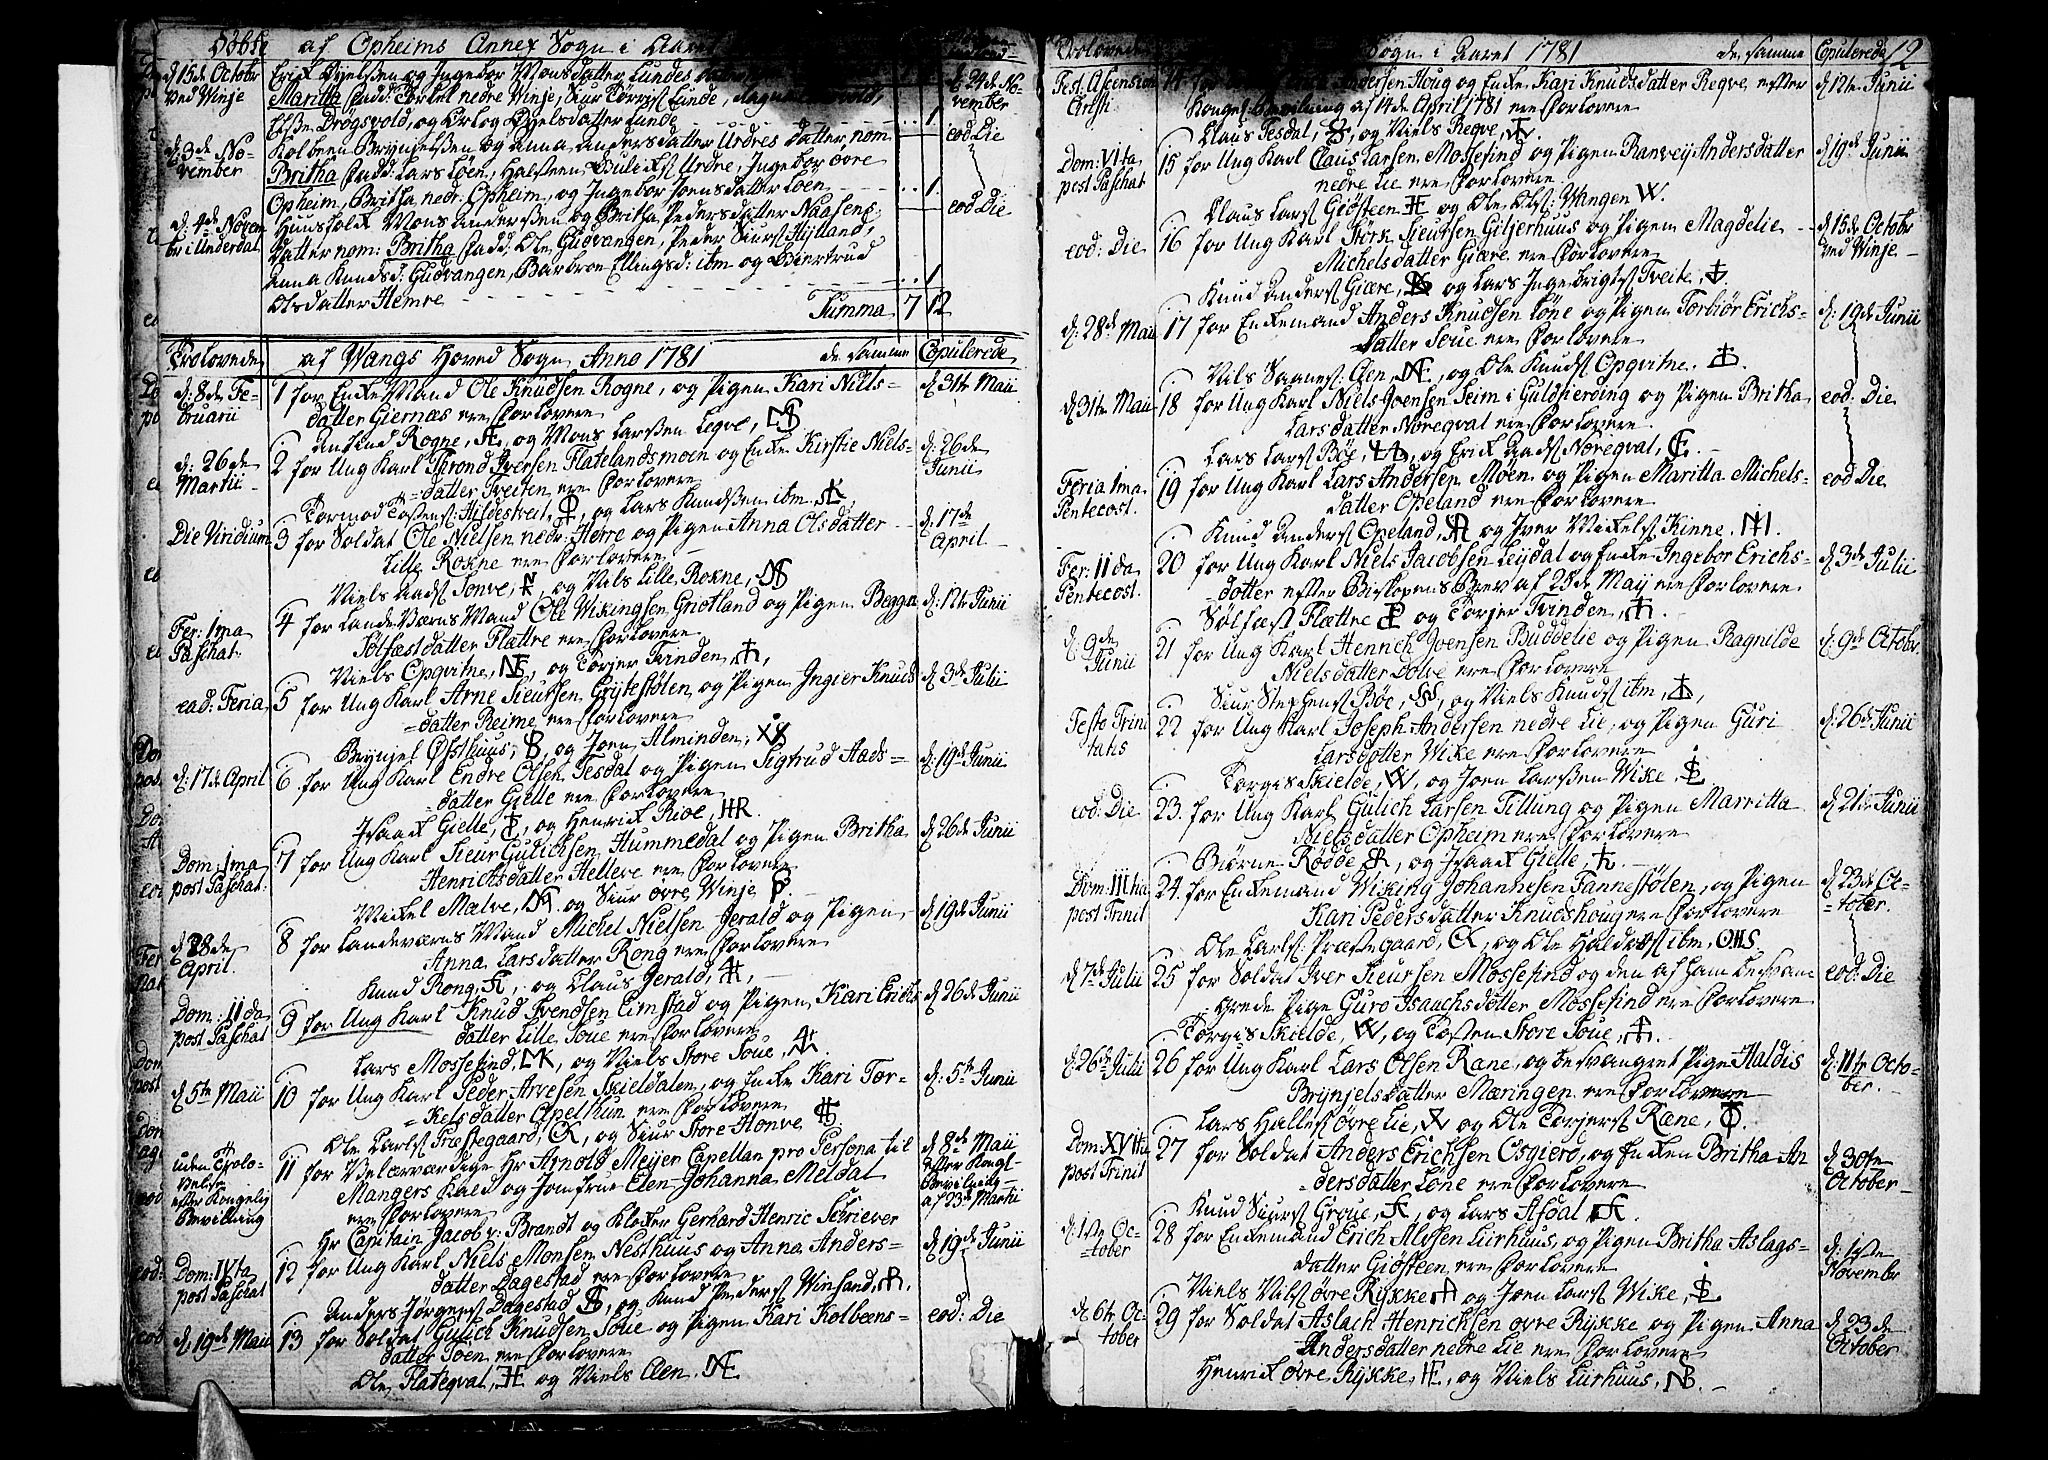 af Opheims Annex Sogn i Aaret
d 15de October
ved Winje
Datter Lundes
Maritta Fadd: Torkel nedre Winje, Siur Lunde,
Drogsvold, og Datter Lunde
d 24de November
d: 3de November
Kolbeen Brynjelssen og Anna Andersdatter Urdres datter nom
Britha Fadd: Lars Løen, Halsteen Urdre, Ingebor øvre
Opheim, Britha nedr. Opheim, og Ingebor Joensdatter Løen 1
eod Die
d: 4de Novembr i Underdal
Huusfolk Mons Anderssen og Britha Pedersdatter Naasens
datter nom: Britha Fadd: Ole Gudvangen, Peder Siurs: Hylland,
Anna Knudsd: Gudvangen, Barbroe Ellingsd: ibm og Giertrud
Olsdatter Hemre 1
eod Die
Summa 7 12
Trolovede
af Wangs Hoved Sogn Anno 1781
de samme Copulerede
d: 8de Februarii
1 for Enke Mand Ole Knudsen Rogne, og Pigen Kari Niels-
datter Giernæs ere Forlovere
Rogne, og Mons Larssen Legve,
d. 31te Maii
d: 26de Martii
2 for Ung Karl Thrond Iversen Flatelandsmoen og Enke Kirstie Niels-
datter Tveiten ere Forlovere
Tormod Hildestveit, og Lars Knudssen ibm.
d: 26de Junii
Die Viridium
3 for Soldat Ole Nielsen nedr: Horre og Pigen Anna Olsdatter
Lille Rokne ere Forlovere
Niels Aads Sonve, og Niels Lille Rokne,
d: 17de April
Fer: 1ma Paschat:
4 for Lande Værns Mand Ole Wikingsen Griotland og Pigen Begga
Sølfæstdatter Flættre ere Forlovere
Niels Opqvitne, og Torjer Tvinden,
d: 12te Junii
ead: Feria
5 for Ung Karl Arne Sieursen Grytestølen og Pigen Ingier Knuds
-datter Reime ere Forlovere
Brynjel Østhuus, og Joen Alminden,
d: 3de Julii
d: 17de April
6 for Ung Karl Endre Olsen Tesdal og Pigen Sigtrud Aads-
-datter Gielle ere Forlovere
Isaack Gielle, og Henrick Rioe, HR
d: 19de Junii
Dom: 1ma post Paschat:
7 for Ung Karl Sieur Gulichsen Hummedal og Pigen Britha
Henrichsdatter Helleve ere Forlovere
Mickel Mælve, og Siur øvre Winje
d 26de Junii
d 28de April
8 for Landeværns Mand Michel Nielsen Jerald og Pigen
Anna Larsdatter Rong ere Forlovere
Knud Rong, og Claus Jerald,
d 19de Junii
Dom: IIda post Paschat
9 for Ung Karl Knud Svendsen Emstad og Pigen Kari Erichs
datter Lille Soue ere Forlovere
Lars Mossefind, og Niels Store Soue,
d 26de Junii
d 5te Maii
10 for Ung Karl Peder Arvesen Skieldalen, og Enke Kari Tor-
-kelsdatter Opelthun ere Forlovere
Ole Carls: Præstegaard, og Siur Store Honve
d: 5te Junii
uden Trolovelse efter Kongelig Bevilning
11 for Velærværdige Hr Arnold Meyer Capellan pro Persona til
Mangers Kald og Jomfrue Elen Johanna Meldal
ere Forlovere
Hr Capitain Jacob v: Brandt og Kloker Gerhard Henric Schriever
d 8de Maii efter Kongl. Bevilning af 23de Martii
Dom: IVta post Paschat
12 for Ung Karl Niels Monsen Nesthuus og Anna Anders-
datter Dagestad ere Forlovere
Anders Jørgens: Dagestad og Knud Peders: Winsand,
d 19de Junii
d: 19de Maii
13 for Soldat Gulich Knudsen Soue og Pigen Kari Kolbeens-
datter Soen ere Forlovere
Ole Flateqval, og Niels Aen.
eod: Die
Trolovede
Sogn i Aaret 1781
de samme Copulerede 12
Fest. Ascension Christi
14 Andersen Houg og Enke Kari Knudsdatter Reqve efter
Konges Bevilning af 14de April 1781 ere Forlovere
Claus Tesdal, og Niels Reqve,
d 12te Junii
Dom: VIta post Paschat
15 for Ung Karl Claus Larsen Mossefind og Pigen Ranveij Andersdatter
nedre Lie ere Forlovere
Claus Lars: Giøsteen og Ole Ols: Wangen W.
d 19de Junii
eod: Die
16 for Ung Karl Størk Sieursen Giljerhuus og Pigen Magdelie
Michelsdatter Giære ere Forlovere
Knud Anders: Giære, og Lars Ingebrigts: Tveite,
d: 15de October ved Winje
d: 28de Maii
17 for Enkemand Anders Knudsen Løne og Pigen Torbiør Erichs-
datter Soue ere Forlovere
Nils Aen, og Ole Knuds: Opqvitne.
d: 19de Junii
d 31te Maii
18 for Ung Karl Niels Joensen Seim i Guldfierding og Pigen Britha
Larsdatter Noreqval ere Forlovere
Lars Lars: Bøe, og Erick Aads: Noreqval,
eod: Die
Feria 1ma Pentecost.
19 for Ung Karl Lars Andersen Møen og Pigen Maritta Michels-
datter Opeland ere Forlovere
Knud Anders: Opeland, og Iver Mickels: Kinne.
eod Die
Fer: IIda Pentecost.
20 for Ung Karl Niels Jacobsen Leydal og Enke Ingebor Erichs-
-datter efter Biskopens Brev af 28de Maij ere Forlovere
Sølfæst Flættre og Torjer Tvinden,
d: 3de Julii
d: 9de Junii
21 for Ung Karl Henrich Joensen Buddelie og Pigen Ragnilde
Nielsdatter Dolve ere Forlovere
Siur Stephens: Bøe, og Niels Knuds: ibm,
d: 9de October
Festo Trinitatis
22 for Ung Karl Joseph Andersen nedre Lie, og Pigen Guri
Larsdatter Wike ere Forlovere
Torgis Skielde, og Joen Larssen Wike,
d: 26de Junii
eod: Die
23. for Ung Karl Gulich Larsen Tillung og Pigen Marritta
Nielsdatter Opheim ere Forlovere
Biørne Rødde, og Isaack Gielle,
d 21de Junii
Dom: IIItia post Trinit
24. for Enkemand Wiking Johannesen Fannestølen, og Pigen
Kari Pedersdatter Knudshoug ere Forlovere
Ole Carls: Præstegaard, og Ole Haldors: ibm, OHS.
d 23de October.
d 7de Julii
25 for Soldat Iver Sieursen Mossefind og den af ham besvan-
grede Pige Guro Isaachsdatter Mossefind ere Forlovere
Torgis Skielde, og Tosten Store Soue,
eod: Die
d: 26de Julii
26 for Ung Karl Lars Olsen Rane, og besvangret Pige Haldis
Brynjelsdatter Mæringen ere Forlovere
Lars Halles: øvre Lie, og Ole Torjers: Rane,
d: 11te October.
Dom: XVIta post Trinit
27 for Soldat Anders Erichsen Osgierd, og Enken Britha An
dersdatter Løne ere Forlovere
Knud Siurs: Groue, og Lars Afdal
d 30te October
d: 1ste October
28 for Enkemand Erich Alfsen Lirhuus, og Pigen Britha Aslags-
datter Giøsteen, ere Forlovere
Niels Nils: øvre Rykke og Joen Lars: Wike,
d: 1ste November
d 6te October
29 for Soldat Aslach Henrichsen øvre Rykke og Pigen Anna
Andersdatter nedre Lie ere Forlovere
Henrick øvre Rykke, og Niels Lirhuus,
d 23de October